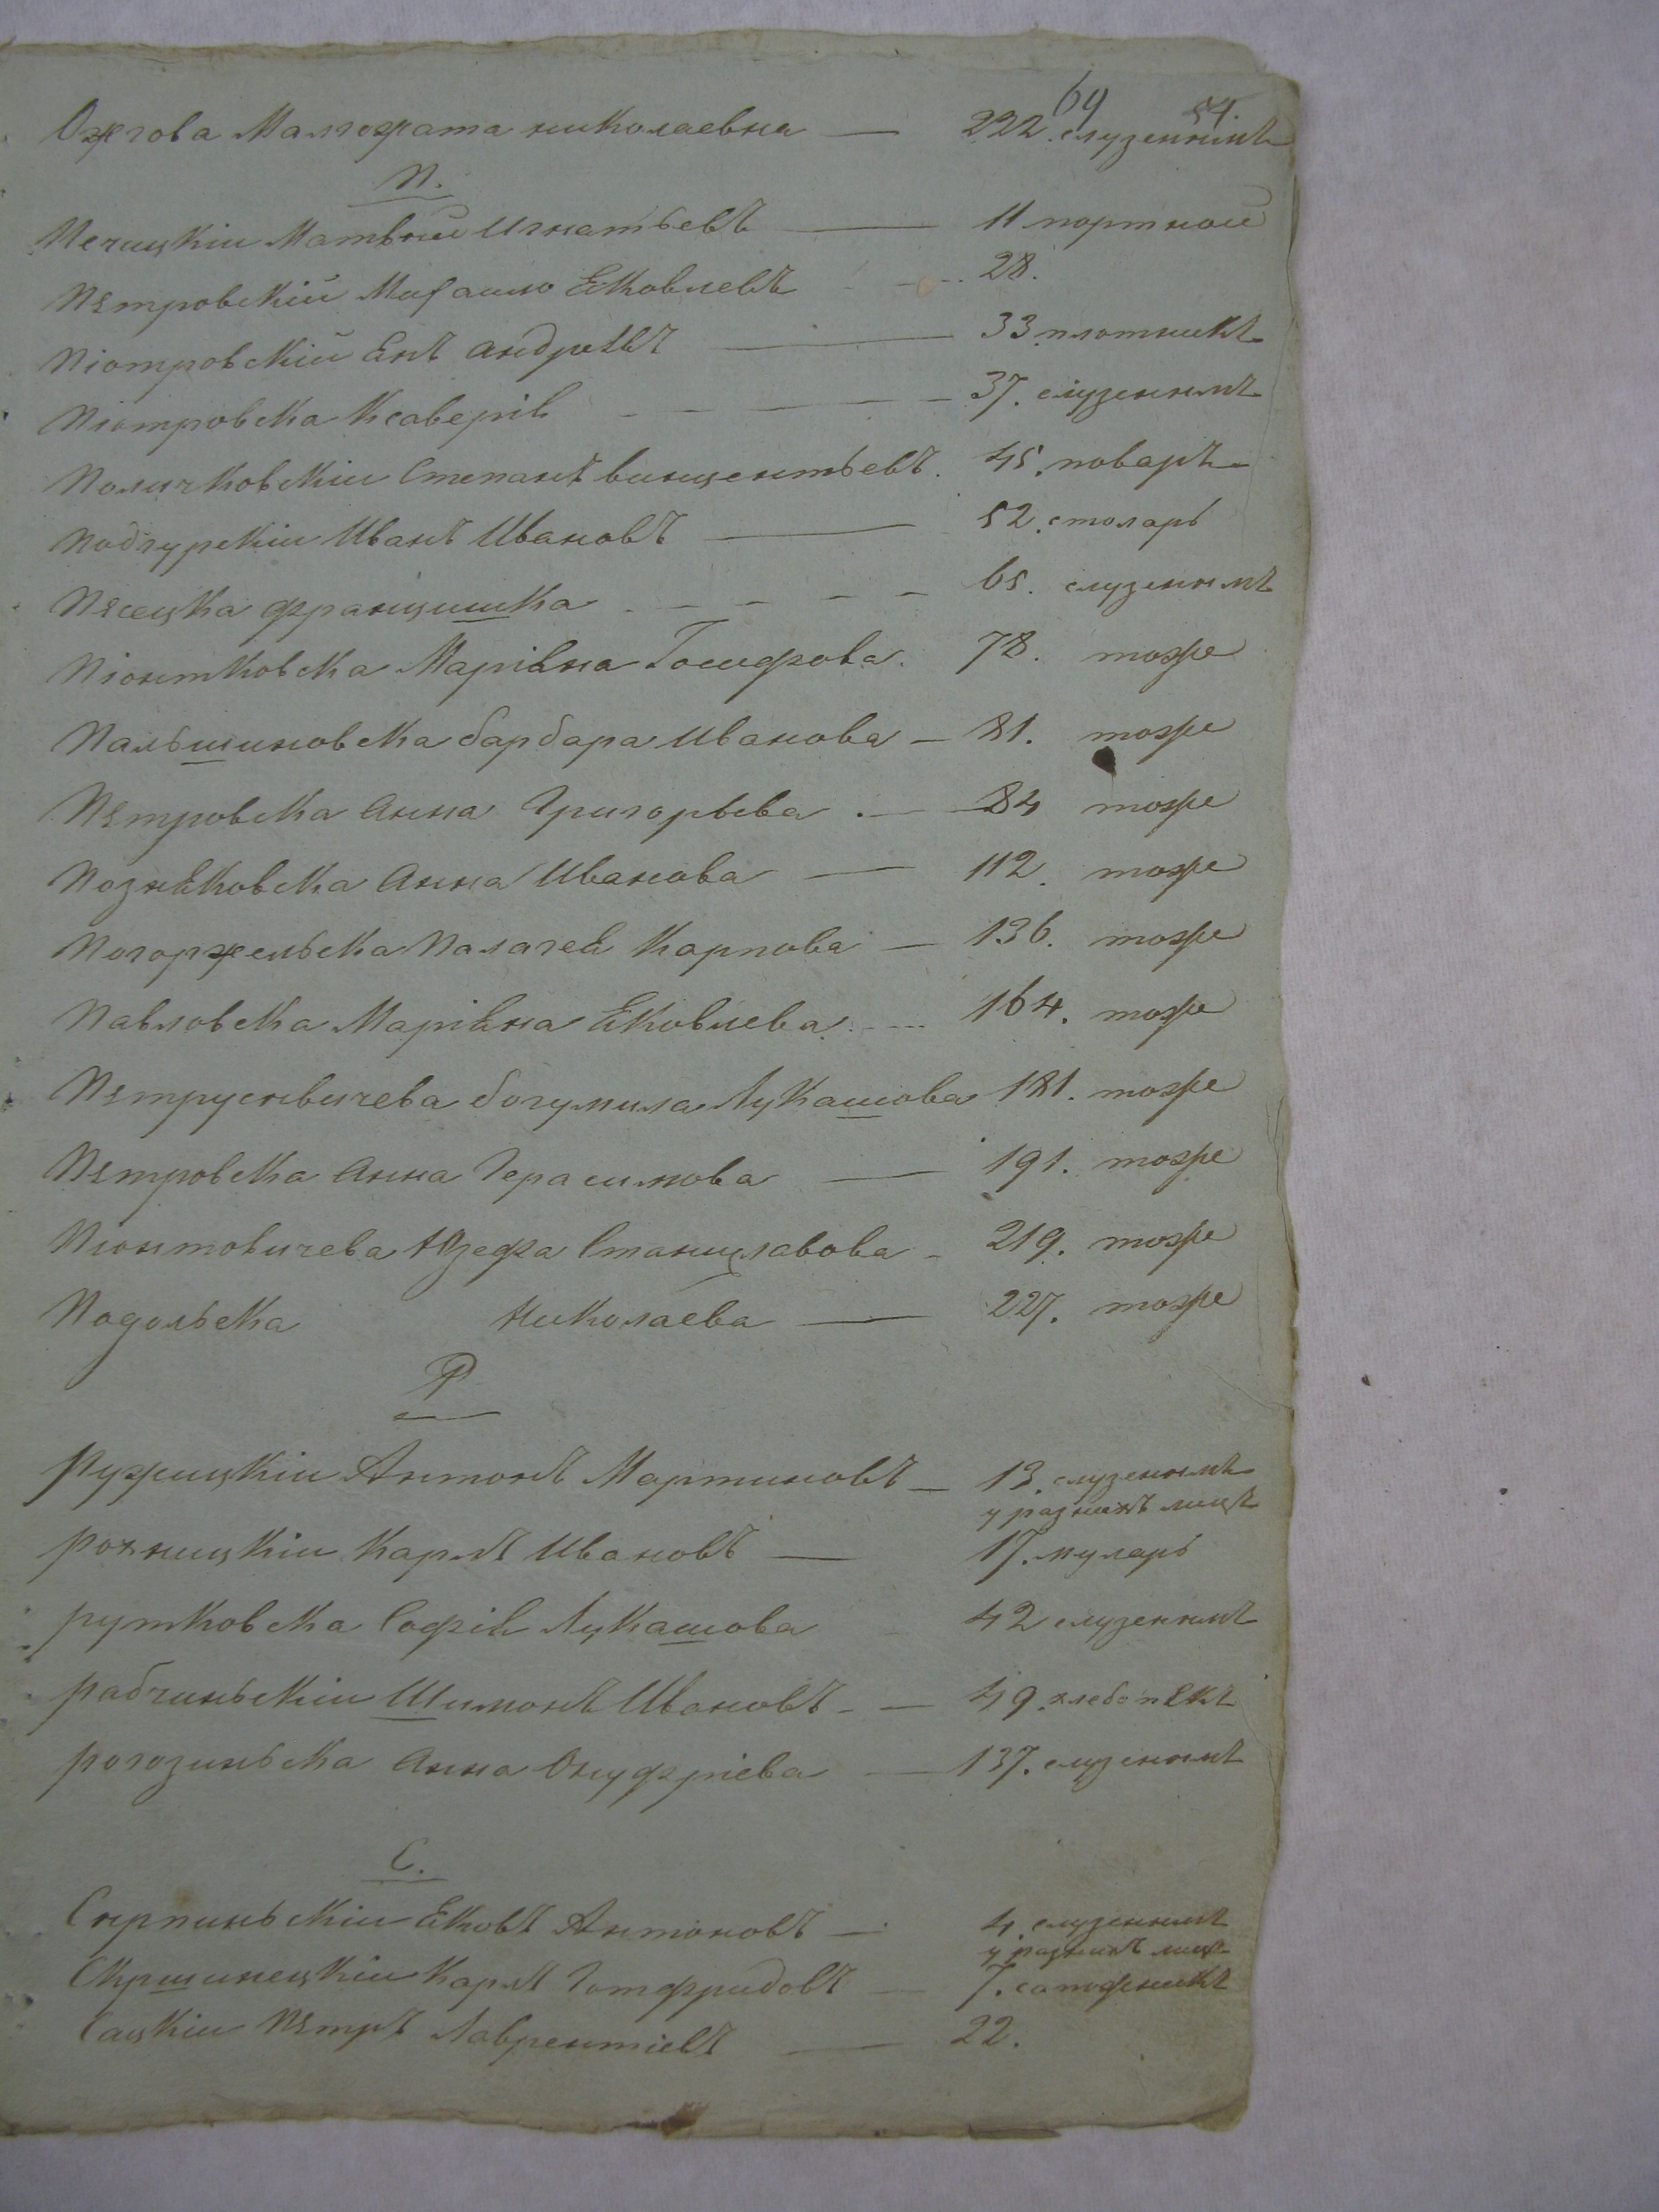 64 54.
Ожгова Малгожата николаевна — 222. слузеннимъ
П.
Печицкіи Матвѣй Игнатьевъ — 11 портной
Пѣтровскій Михаило Яковлевъ - - 28.
Піотровскій Янъ андреевъ — 33 плотникъ
Піотровска Ксаверія - - - - 37. слузеннимъ
Поличковскіи Степанъ винцентьевъ. 45. поваръ
Подгурскіи Иванъ Ивановъ — 52. столарь
Пясецка францишка - - - - 65. слузеннимъ
Піонтковска Маріяна Гошфова. 78. тоже
Пальшиновска барбара Иванова — 81. тоже
Пѣтровска Анна Григорьева . — 84 тоже
Позняковска Анна Иванова — 112. тоже
Погоржельска Палагея Карпова — 136. тоже
Павловска Маріяна Яковлева - - - 164. тоже
Пѣтрусевичева богумила Лукашова 181. тоже
Пѣтровска Анна Герасимова — 191. тоже
Піонтовичева Юзефа Станиславова - 219. тоже
Подольска Николаева — 227. тоже
Р
Ружицкіи Антонъ Мартиновъ — 13. слузеннимъ
у разнихъ лицъ
рохницкіи Карлъ Ивановъ — 17. муларь
рутковска Софія Лукашова 42 слузеннимъ
рабчиньскіи Шимонъ Ивановъ - — 49. хлебопѣкъ
рогозиньска Анна Онуфріева — 137. слузеннимъ
С.
Скрпиньскіи Яковъ Антоновъ — 4. слузеннимъ
у разнихъ лицъ
Скршинецкіи Карлъ Готфридовъ — 7. сапожникъ
Сацкіи Пѣтръ Лаврентіевъ — 22.